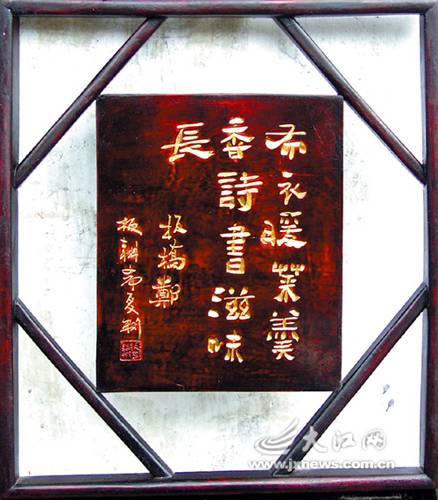 布衣暖菜羹
香詩書滋味
長
板橋鄭
板耕斋夏
大江网
www.jxnews.com.cn